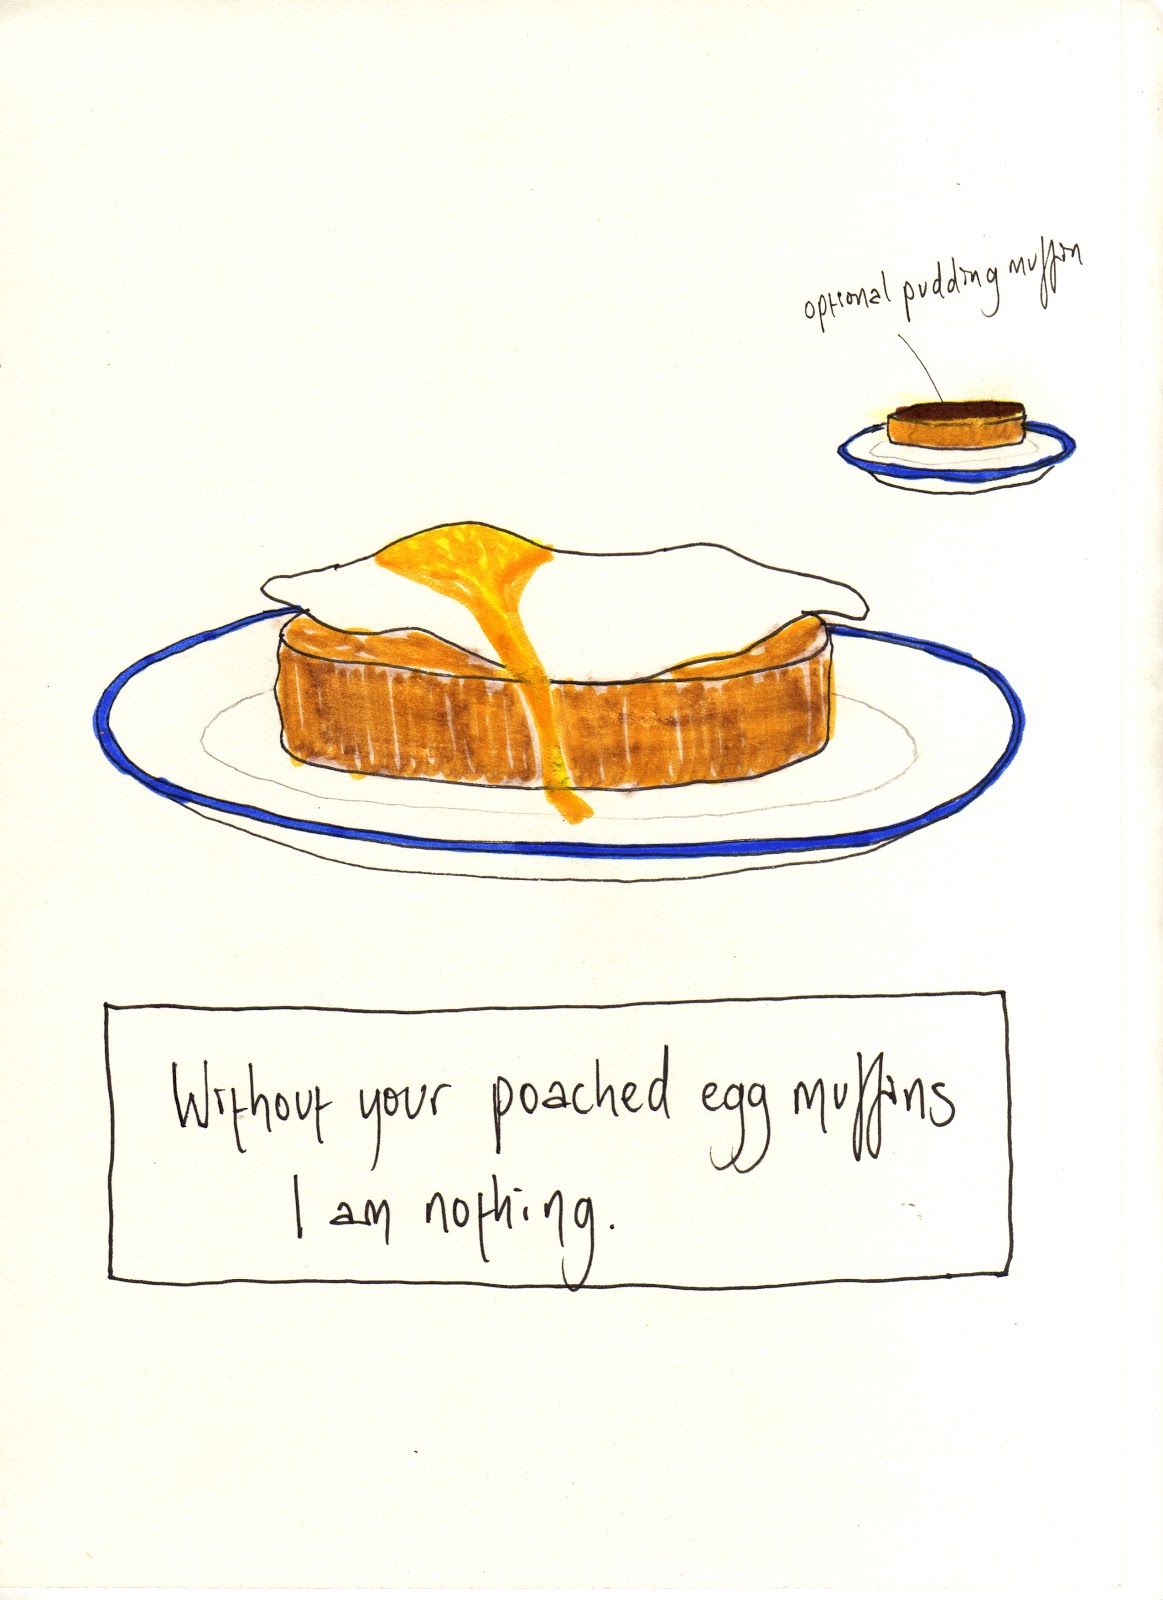 optional pudding muffin
Without your poached egg muffins
I am nothing.